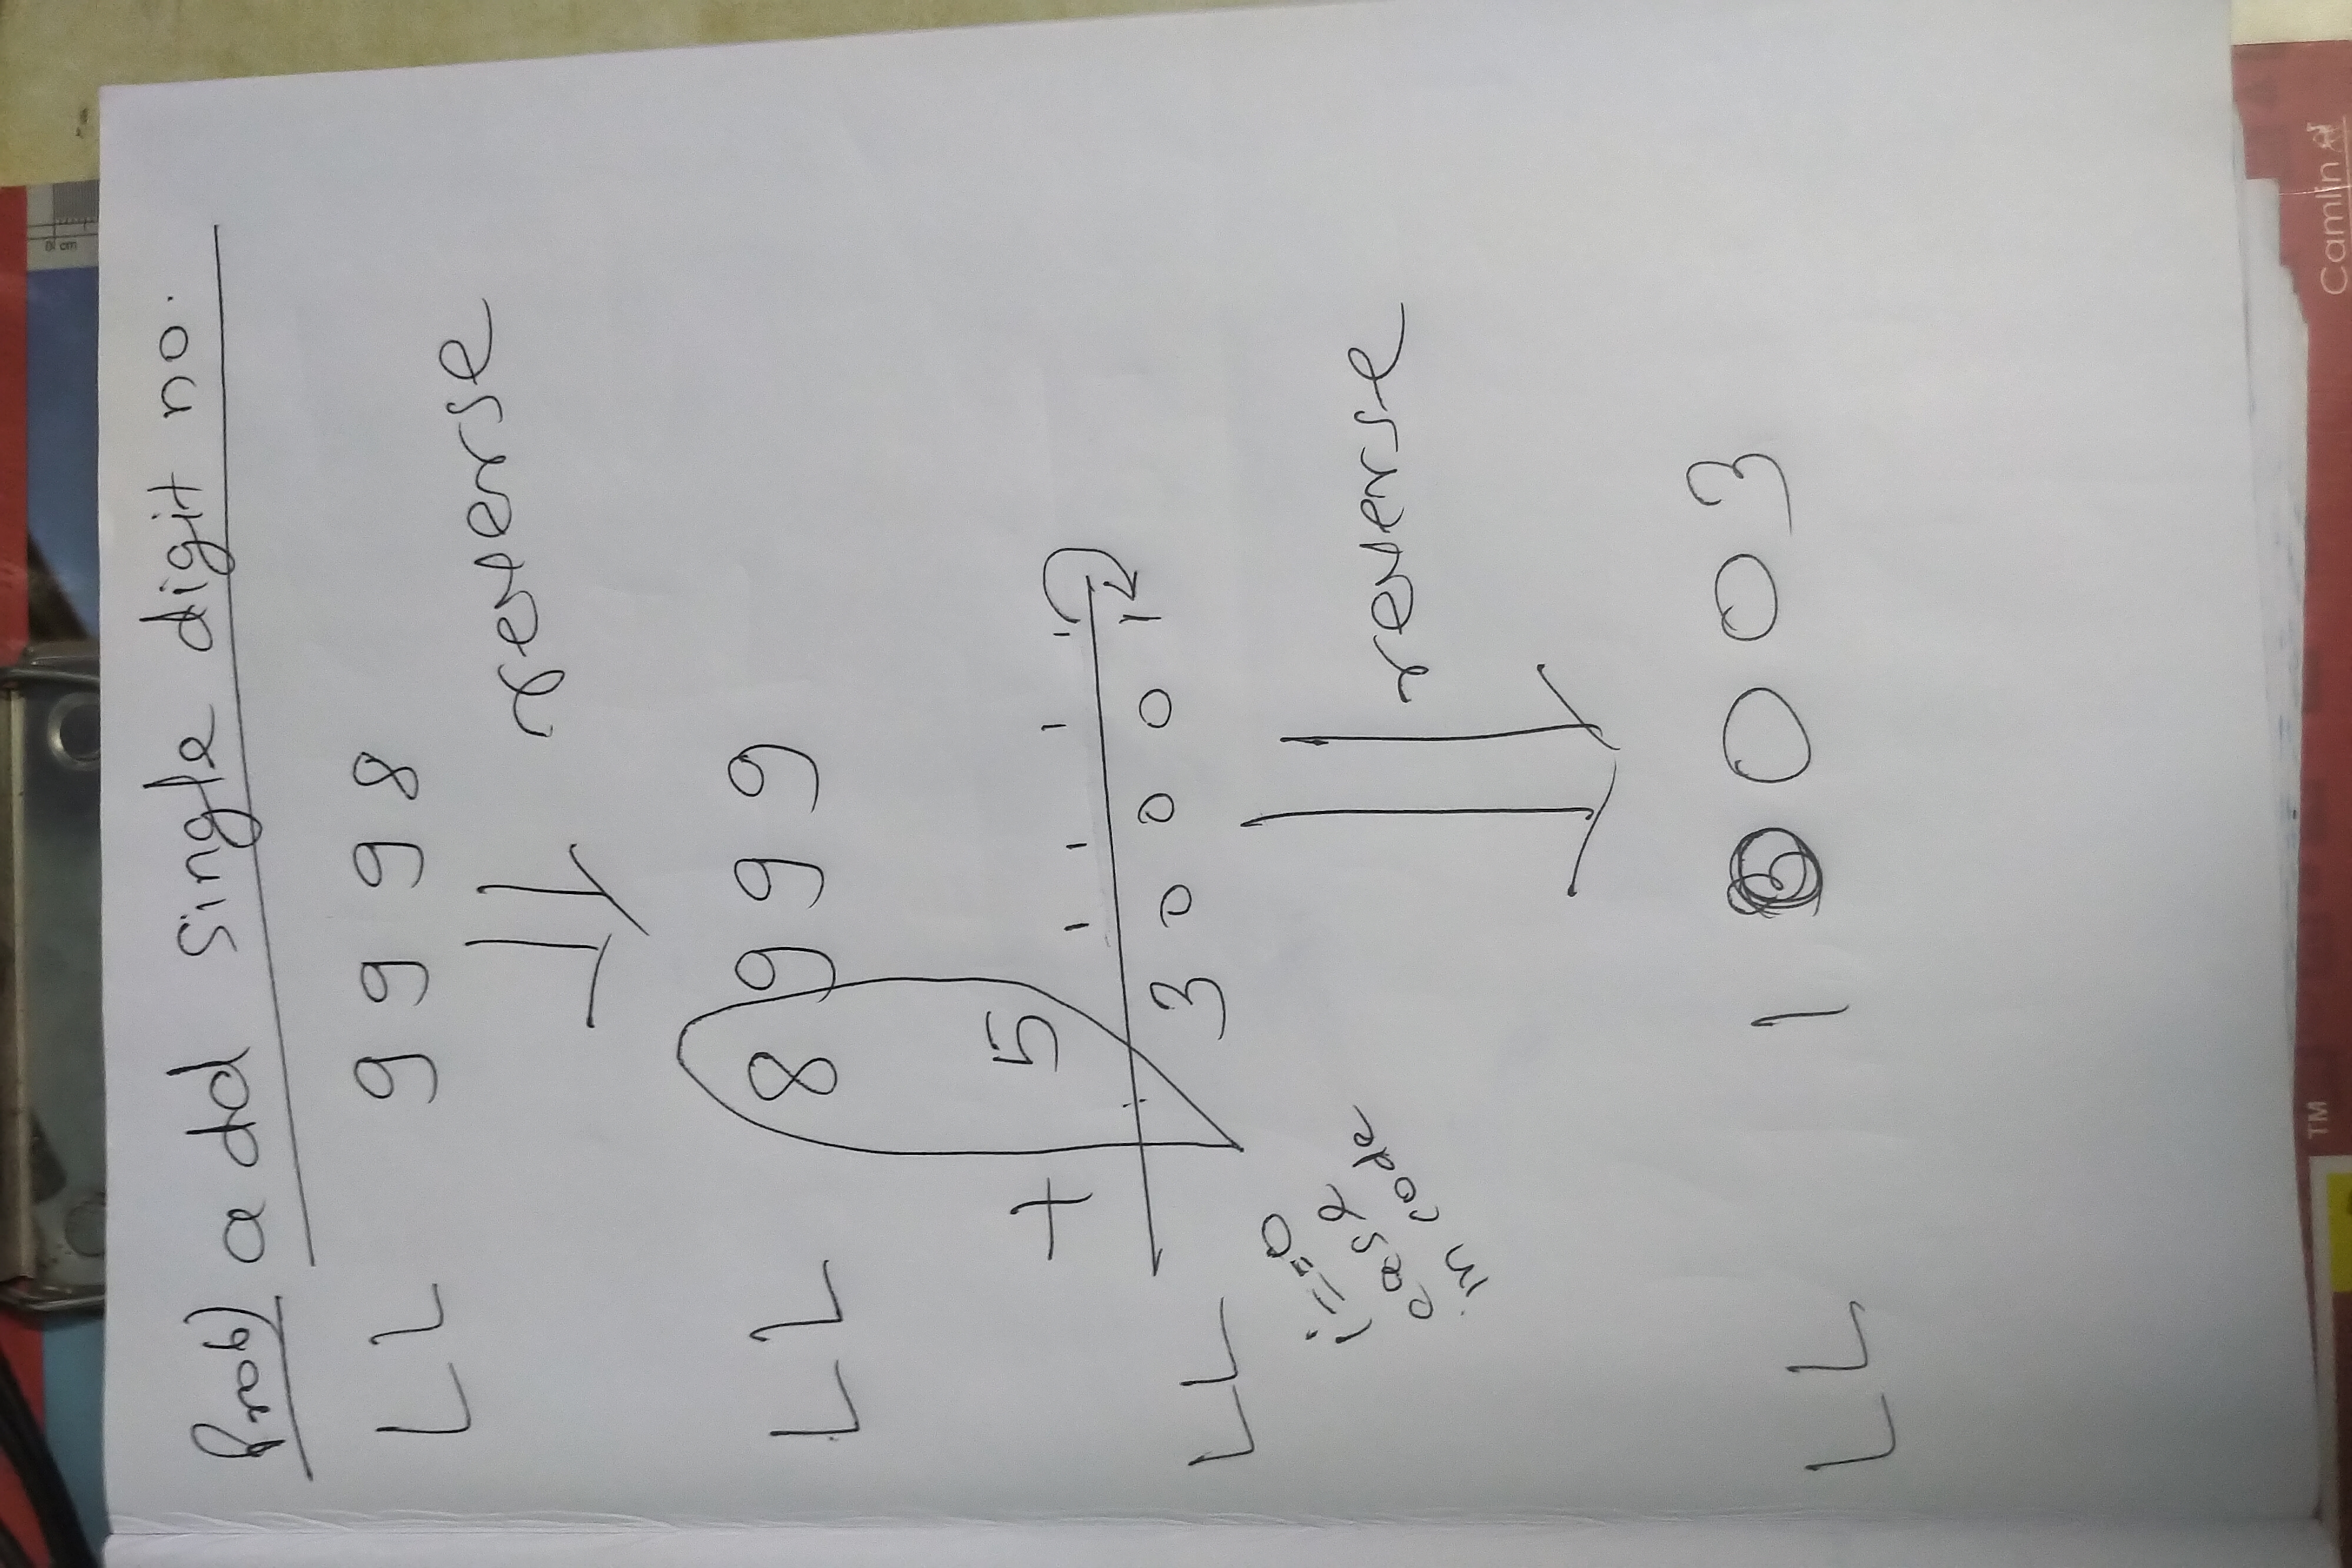 Prob) add single digit no.
LL 9 9 9 8
reverse
LL 8 9 9 9
+ 5
1 1 1 1
LL 3 0 0 0 1
i==0
case
in code
reverse
LL 1 0 0 0 3
TM
Camlin